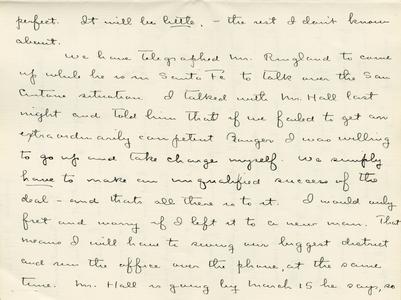 perfect. It will be little, - the rest I don't know
about.
We have telegraphed Mr. Ringland to come
up while he is in Santa Fé to talk over the San
situation. I talked with Mr. Hall last
night and told him that if we failed to get an
extraordinarily competent Ranger I was willing
to go up and take charge myself. We simply
have to make an unqualified success of the
deal - and thats all there is to it. I would only
fret and worry if I left it to a new man. That
means I will have to swing our biggest district
and run the office over the phone, at the same
time. Mr. Hall is going by March 15 he says, so